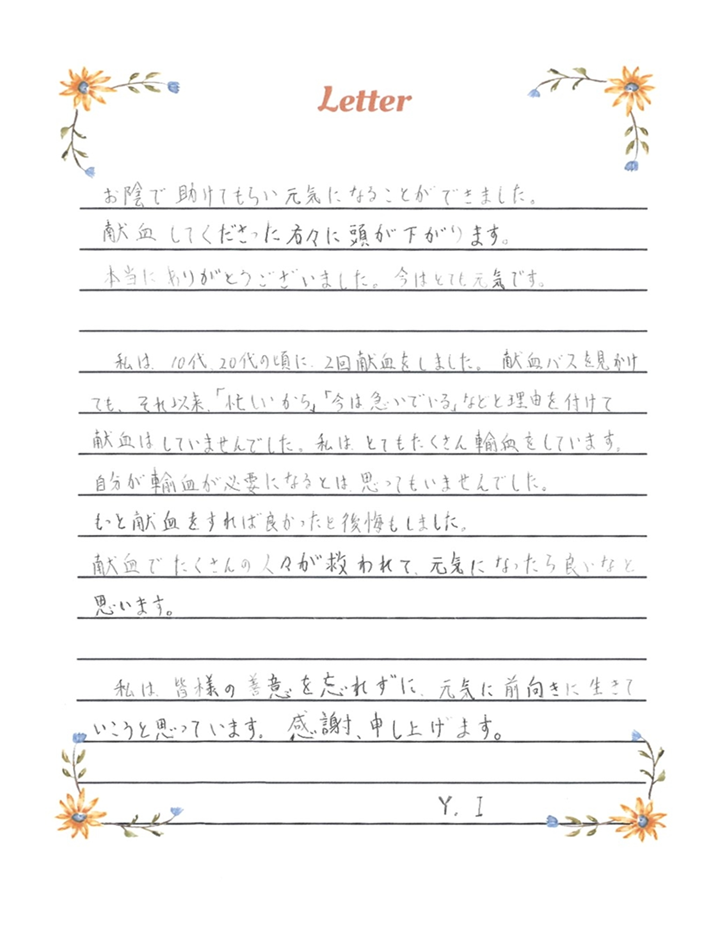 Letter
お陰で助けてもらい元気になることができました。
献血してくださった方々に頭が下がります。
本当にありがとうございました。今はとても元気です。
私は、10代、20代の頃に、2回献血をしました。献血バスを見かけ
ても、それ以来、「忙しいから」「今は急いでいる」などと理由を付けて
献血はしていませんでした。私は、とてもたくさん輸血をしています。
自分が輸血が必要になるとは、思ってもいませんでした。
もっと献血をすれば良かったと後悔もしました。
献血でたくさんの人々が救われて、元気になったら良いなと
思います。
私は、皆様の善意を忘れずに、元気に前向きに生きて
いこうと思っています。感謝、申し上げます。
Y. I